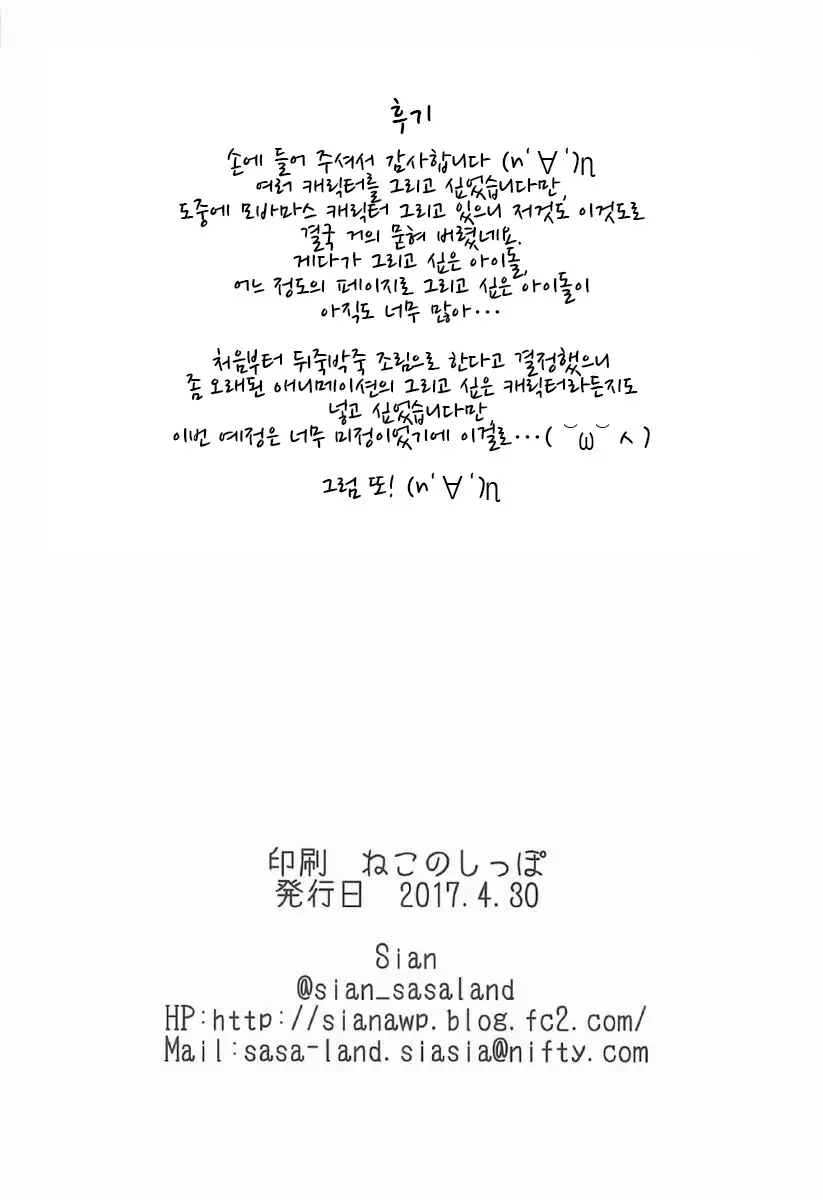 후기
손에 들어 주셔서 감사합니다 (n'∀')η
여러 캐릭터를 그리고 싶었습니다만,
도중에 모바마스 캐릭터 그리고 있으니 저것도 이것도로
결국 거의 묻혀 버렸네요.
게다가 그리고 싶은 아이돌,
어느 정도의 페이지로 그리고 싶은 아이돌이
아직도 너무 많아···
처음부터 뒤죽박죽 조림으로 한다고 결정했으니
좀 오래된 애니메이션의 그리고 싶은 캐릭터라든지도
넣고 싶었습니다만,
이번 예정은 너무 미정이었기에 이걸로···( ˘ω˘ ㅅ )
그럼 또! (n'∀')η
印刷　ねこのしっぽ
発行日　2017.4.30
Sian
@sian_sasaland
HP:http://sianawp.blog.fc2.com/
Mail:sasa-land.siasia@nifty.com